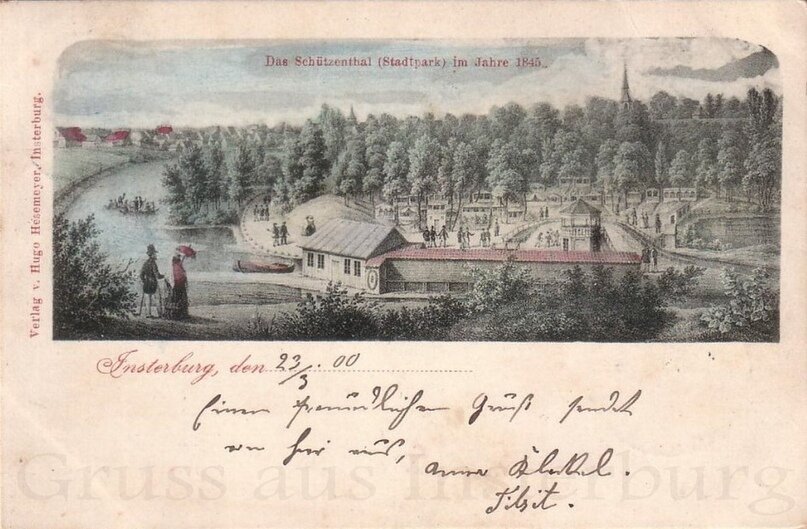 Das Schützenthal (Stadtpark) im Jahre 1845.
Verlag v. Hugo Hesemeyer, Insterburg.
Insterburg, den 23/3. 00
Einen freundlichen Gruß sendet
von hier aus, Anna
Tilsit.
Gruss aus Insterburg